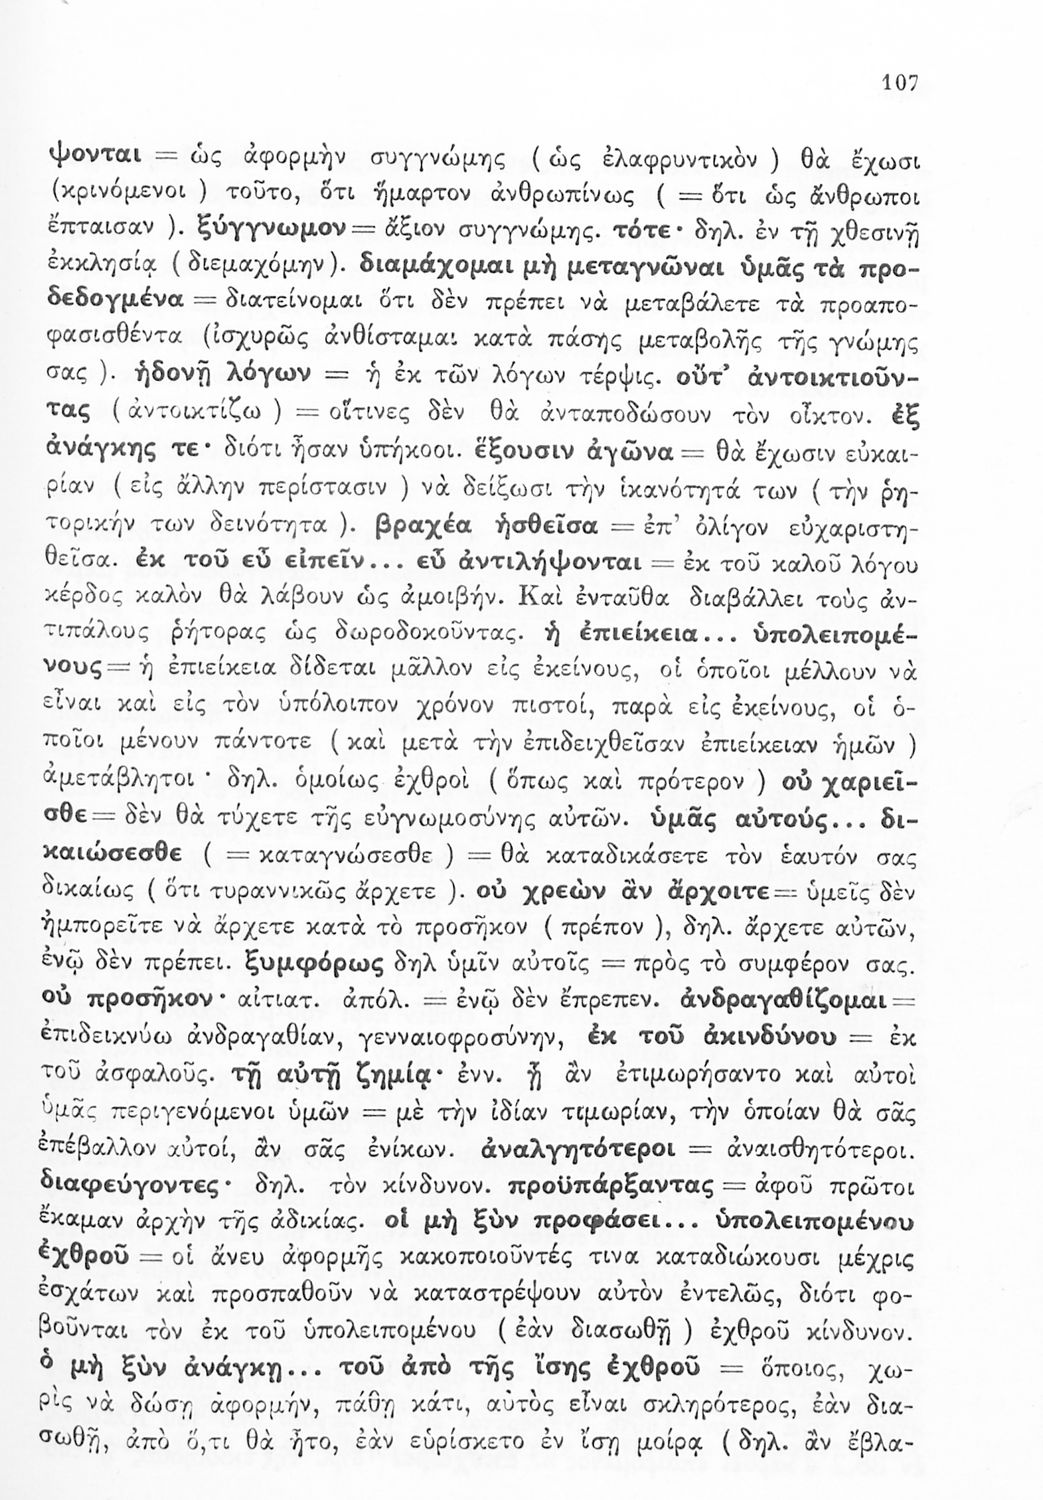 107
ψονται = ὡς ἀφορμὴν συγγνώμης ( ὡς ἐλαφρυντικὸν ) θὰ ἔχωσι
(κρινόμενοι ) τοῦτο, ὅτι ἥμαρτον ἀνθρωπίνως ( = ὅτι ὡς ἄνθρωποι
ἔπταισαν ). ξύγγνωμον = ἄξιον συγγνώμης. τότε· δηλ. ἐν τῇ χθεσινῇ
ἐκκλησίᾳ ( διεμαχόμην ). διαμάχομαι μὴ μεταγνῶναι ὑμᾶς τὰ προ-
δεδογμένα = διατείνομαι ὅτι δὲν πρέπει νὰ μεταβάλετε τὰ προαπο-
φασισθέντα (ἰσχυρῶς ἀνθίσταμαι κατὰ πάσης μεταβολῆς τῆς γνώμης
σας ). ἡδονῇ λόγων = ἡ ἐκ τῶν λόγων τέρψις. οὔτ' ἀντοικτιοῦν-
τας ( ἀντοικτίζω ) = οἵτινες δὲν θὰ ἀνταποδώσουν τὸν οἶκτον. ἐξ
ἀνάγκης τε· διότι ἦσαν ὑπήκοοι. ἕξουσιν ἀγῶνα = θὰ ἔχωσιν εὐκαι-
ρίαν ( εἰς ἄλλην περίστασιν ) νὰ δείξωσι τὴν ἱκανότητά των ( τὴν ῥη-
τορικήν των δεινότητα ). βραχέα ἡσθεῖσα = ἐπ' ὀλίγον εὐχαριστη-
θεῖσα. ἐκ τοῦ εὖ εἰπεῖν... εὖ ἀντιλήψονται = ἐκ τοῦ καλοῦ λόγου
κέρδος καλὸν θὰ λάβουν ὡς ἀμοιβήν. Καὶ ἐνταῦθα διαβάλλει τοὺς ἀν-
τιπάλους ῥήτορας ὡς δωροδοκοῦντας. ἡ ἐπιείκεια... ὑπολειπομέ-
νους = ἡ ἐπιείκεια δίδεται μᾶλλον εἰς ἐκείνους, οἱ ὁποῖοι μέλλουν νὰ
εἶναι καὶ εἰς τὸν ὑπόλοιπον χρόνον πιστοί, παρὰ εἰς ἐκείνους, οἱ ὁ-
ποῖοι μένουν πάντοτε ( καὶ μετὰ τὴν ἐπιδειχθεῖσαν ἐπιείκειαν ἡμῶν )
ἀμετάβλητοι · δηλ. ὁμοίως ἐχθροὶ ( ὅπως καὶ πρότερον ) οὐ χαριεῖ-
σθε = δὲν θὰ τύχετε τῆς εὐγνωμοσύνης αὐτῶν. ὑμᾶς αὐτούς... δι-
καιώσεσθε ( = καταγνώσεσθε ) = θὰ καταδικάσετε τὸν ἑαυτόν σας
δικαίως ( ὅτι τυραννικῶς ἄρχετε ). οὐ χρεὼν ἂν ἄρχοιτε = ὑμεῖς δὲν
ἠμπορεῖτε νὰ ἄρχετε κατὰ τὸ προσῆκον ( πρέπον ), δηλ. ἄρχετε αὐτῶν,
ἐνῷ δὲν πρέπει. ξυμφόρως δηλ ὑμῖν αὐτοῖς = πρὸς τὸ συμφέρον σας.
οὐ προσῆκον· αἰτιατ. ἀπόλ. = ἐνῷ δὲν ἔπρεπεν. ἀνδραγαθίζομαι =
ἐπιδεικνύω ἀνδραγαθίαν, γενναιοφροσύνην, ἐκ τοῦ ἀκινδύνου = ἐκ
τοῦ ἀσφαλοῦς. τῇ αὐτῇ ζημίᾳ· ἐνν. ᾗ ἂν ἐτιμωρήσαντο καὶ αὐτοὶ
ὑμᾶς περιγενόμενοι ὑμῶν = μὲ τὴν ἰδίαν τιμωρίαν, τὴν ὁποίαν θὰ σᾶς
ἐπέβαλλον αὐτοί, ἂν σᾶς ἐνίκων. ἀναλγητότεροι = ἀναισθητότεροι.
διαφεύγοντες· δηλ. τὸν κίνδυνον. προϋπάρξαντας = ἀφοῦ πρῶτοι
ἔκαμαν ἀρχὴν τῆς ἀδικίας. οἱ μὴ ξὺν προφάσει... ὑπολειπομένου
ἐχθροῦ = οἱ ἄνευ ἀφορμῆς κακοποιοῦντές τινα καταδιώκουσι μέχρις
ἐσχάτων καὶ προσπαθοῦν νὰ καταστρέψουν αὐτὸν ἐντελῶς, διότι φο-
βοῦνται τὸν ἐκ τοῦ ὑπολειπομένου ( ἐὰν διασωθῇ ) ἐχθροῦ κίνδυνον.
ὁ μὴ ξὺν ἀνάγκῃ... τοῦ ἀπὸ τῆς ἴσης ἐχθροῦ = ὅποιος, χω-
ρὶς νὰ δώσῃ ἀφορμήν, πάθῃ κάτι, αὐτὸς εἶναι σκληρότερος, ἐὰν δια-
σωθῇ, ἀπὸ ὅ,τι θὰ ἦτο, ἐὰν εὑρίσκετο ἐν ἴσῃ μοίρᾳ ( δηλ. ἂν ἔβλα-